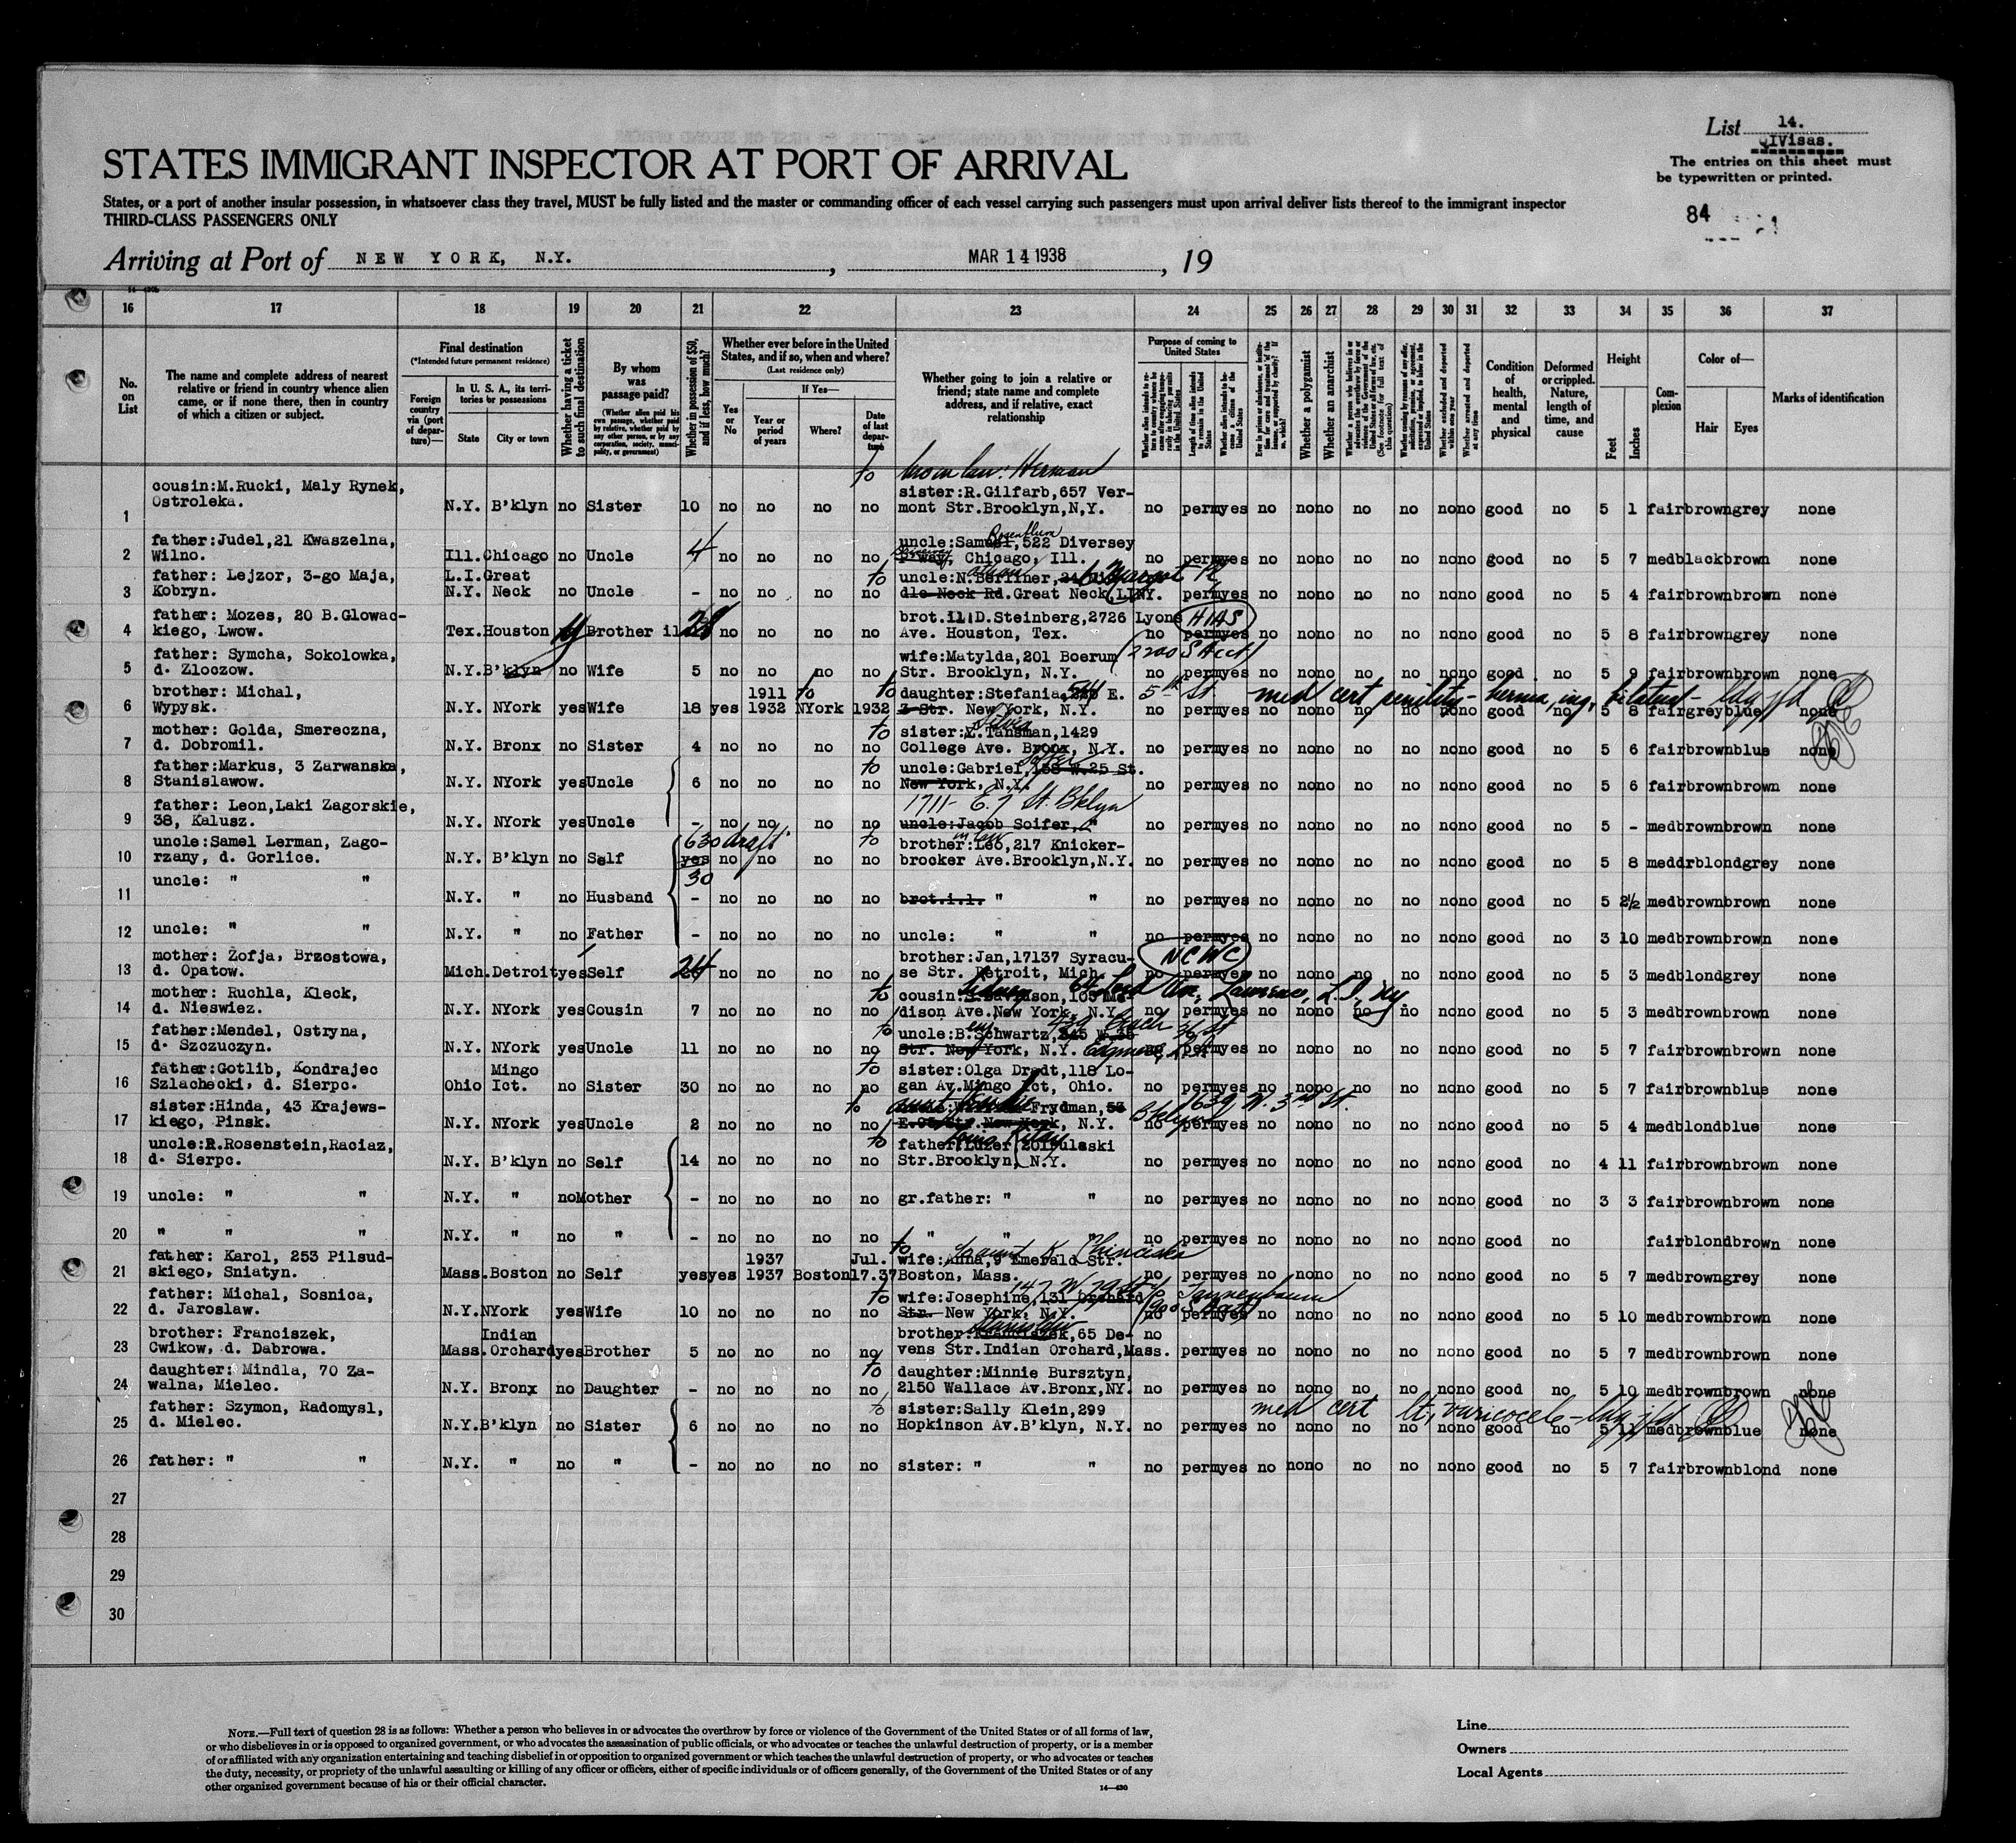 List 14.
QIVisas.
The entries on this sheet must
be typewritten or printed.
84
STATES IMMIGRANT INSPECTOR AT PORT OF ARRIVAL
States, or a port of another insular possession, in whatsoever class they travel, MUST be fully listed and the master or commanding officer of each vessel carrying such passengers must upon arrival deliver lists thereof to the immigrant inspector
THIRD-CLASS PASSENGERS ONLY
Arriving at Port of NEW YORK, N.Y. , MAR 14 1938 , 19
16 17 18 19 20 21 22 23 24 25 26 27 28 29 30 31 32 33 34 35 36 37
No. on List
The name and complete address of nearest relative or friend in country whence alien came, or if none there, then in country of which a citizen or subject.
Final destination
(*Intended future permanent residence)
Foreign country via (port of departure)—
In U. S. A., its territories or possessions
State City or town
Whether having a ticket to such final destination
By whom was passage paid?
(Whether alien paid his own passage, whether paid by relative, whether paid by any other person, or by any corporation, society, municipality, or government)
Whether in possession of $50, and if less, how much?
Whether ever before in the United States, and if so, when and where?
(Last residence only)
Yes or No
If Yes—
Year or period of years
Where?
Date of last departure
Whether going to join a relative or friend; state name and complete address, and if relative, exact relationship
Purpose of coming to United States
Whether a polygamist
Whether an anarchist
Whether excluded and deported within one year
Whether arrested and deported at any time
Condition of health, mental and physical
Deformed or crippled. Nature, length of time, and cause
Height
Feet Inches
Complexion
Color of—
Hair Eyes
Marks of identification
to bro in law: Herman
cousin:M.Rucki, Maly Rynek, sister:R.Gilfarb,657 Ver-
1 Ostroleka. N.Y. B'klyn no Sister 10 no no no no mont Str.Brooklyn,N,Y. no perm yes no no no no no no no good no 5 1 fair brown grey none
father:Judel,21 Kwaszelna, uncle:Samuel,522 Diversey Rosenblum
2 Wilno. Ill.Chicago no Uncle 4 no no no no Chicago, Ill. no perm yes no no no no no no no good no 5 7 med black brown none
father: Lejzor, 3-go Maja, L.I.Great to uncle:N.Berliner,
3 Kobryn. N.Y. Neck no Uncle - no no no no dle Neck Rd.Great Neck,LINY. no perm yes no no no no no no no good no 5 4 fair brown brown none
father: Mozes, 20 B.Glowac- brot.il:D.Steinberg,2726 Lyons HIAS
4 kiego, Lwow. Tex.Houston Brother il no no no no Ave. Houston, Tex. no perm yes no no no no no no no good no 5 8 fair brown grey none
father: Symcha, Sokolowka, wife:Matylda,201 Boerum
5 d. Zloczow. N.Y.B'klyn no Wife 5 no no no no Str. Brooklyn, N.Y. no perm yes no no no no no no no good no 5 9 fair brown brown none
brother: Michal, 1911 to to daughter:Stefania, E. 5th St. med cert senility - hernia, ing, bilateral
6 Wypysk. N.Y. NYork yes Wife 18 yes 1932 NYork 1932 3 Str. New York, N.Y. no perm yes no no no no no no no good no 5 8 fair grey blue none
mother: Golda, Smereczna, to sister: Tansman,1429 Silvia
7 d. Dobromil. N.Y. Bronx no Sister 4 no no no no College Ave. Bronx, N.Y. no perm yes no no no no no no no good no 5 6 fair brown blue none
father:Markus, 3 Zarwanska, to uncle:Gabriel,158 W.25 St.
8 Stanislawow. N.Y. NYork yes Uncle 6 no no no no New York, N.Y. no perm yes no no no no no no no good no 5 6 fair brown brown none
father: Leon,Laki Zagorskie, 1711 - E. 7 St. Bklyn
9 38, Kalusz. N.Y. NYork yes Uncle - no no no no uncle:Jacob Soifer, " no perm yes no no no no no no no good no 5 - med brown brown none
uncle:Samel Lerman, Zago- 630 draft to brother:Leo,217 Knicker- in law
10 rzany, d. Gorlice. N.Y. B'klyn no Self yes no no no no brocker Ave.Brooklyn,N.Y. no perm yes no no no no no no no good no 5 8 med drblond grey none
uncle: " " 30
11 N.Y. " no Husband - no no no no brot.i.l. " " no perm yes no no no no no no no good no 5 2½ med brown brown none
12 uncle: " " N.Y. " no Father - no no no no uncle: " " no perm yes no no no no no no no good no 3 10 med brown brown none
mother: Zofja, Brzostowa, brother:Jan,17137 Syracu- NCWC
13 d. Opatow. Mich.Detroit yes Self 24 no no no no se Str. Detroit, Mich. no perm yes no no no no no no no good no 5 3 med blond grey none
mother: Ruchla, Kleck, to cousin: Sidney 64 Lord Ave, Lawrence, L.I. NY.
14 d. Nieswiez. N.Y. NYork yes Cousin 7 no no no no dison Ave.New York, N.Y. no perm yes no no no no no no no good no 5 3 med brown brown none
father:Mendel, Ostryna, to uncle:B.Schwartz, 439 Beach 36 St
15 d. Szczuczyn. N.Y. NYork yes Uncle 11 no no no no Str. New York, N.Y. perm yes no no no no no no no good no 5 7 fair brown brown none
father:Gotlib, Kondrajec Mingo to sister:Olga Dradt,118 Lo-
16 Szlachecki, d. Sierpc. Ohio Ict. no Sister 30 no no no no gan Av.Mingo Ict, Ohio. no perm yes no no no no no no no good no 5 7 fair brown blue none
sister:Hinda, 43 Krajews- to aunt Frydman, 1639 W. 3rd St.
17 kiego, Pinsk. N.Y. NYork yes Uncle 2 no no no no New York, N.Y. Bklyn no perm yes no no no no no no no good no 5 4 med blond blue none
uncle:R.Rosenstein,Raciaz, to father: Louis Pulaski
18 d. Sierpc. N.Y. B'klyn no Self 14 no no no no Str.Brooklyn, N.Y. no perm yes no no no no no no no good no 4 11 fair brown brown none
19 uncle: " " N.Y. " no Mother - no no no no gr.father: " " no perm yes no no no no no no no good no 3 3 fair brown brown none
20 " " " N.Y. " no " - no no no no " " no perm yes no no no no no no no good no fair blond brown none
father: Karol, 253 Pilsud- 1937 Jul. to wife:Anna,9 Emerald Str.
21 skiego, Sniatyn. Mass.Boston no Self yes yes 1937 Boston 17.37 Boston, Mass. no perm yes no no no no no no no good no 5 7 med brown grey none
father: Michal, Sosnica, to wife:Josephine,131 Orchard 147 W 79 St c/o Tannenbaum
22 d. Jaroslaw. N.Y.NYork yes Wife 10 no no no no Str. New York, N.Y. no perm yes no no no no no no no good no 5 10 med brown brown none
brother: Franciszek, Indian brother:Franciszek,65 De- no Stanislaw
23 Cwikow, d. Dabrowa. Mass.Orchard yes Brother 5 no no no no vens Str.Indian Orchard,Mass. perm yes no no no no no no no good no 5 7 med brown brown none
daughter: Mindla, 70 Za- to daughter:Minnie Bursztyn,
24 walna, Mielec. N.Y. Bronx no Daughter - no no no no 2150 Wallace Av.Bronx,NY. no perm yes no no no no no no no good no 5 10 med brown brown none
father: Szymon, Radomysl, to sister:Sally Klein,299 med cert lt, varicocele
25 d. Mielec. N.Y.B'klyn no Sister 6 no no no no Hopkinson Av.B'klyn, N.Y. no perm yes no no no no no no no good no 5 11 med brown blue none
26 father: " " N.Y. " no " - no no no no sister: " " no perm yes no no no no no no no good no 5 7 fair brown blond none
27
28
29
30
NOTE.—Full text of question 28 is as follows: Whether a person who believes in or advocates the overthrow by force or violence of the Government of the United States or of all forms of law,
or who disbelieves in or is opposed to organized government, or who advocates the assassination of public officials, or who advocates or teaches the unlawful destruction of property, or is a member
of or affiliated with any organization entertaining and teaching disbelief in or opposition to organized government or which teaches the unlawful destruction of property, or who advocates or teaches
the duty, necessity, or propriety of the unlawful assaulting or killing of any officer or officers, either of specific individuals or of officers generally, of the Government of the United States or of any
other organized government because of his or their official character.
14—430
Line
Owners
Local Agents